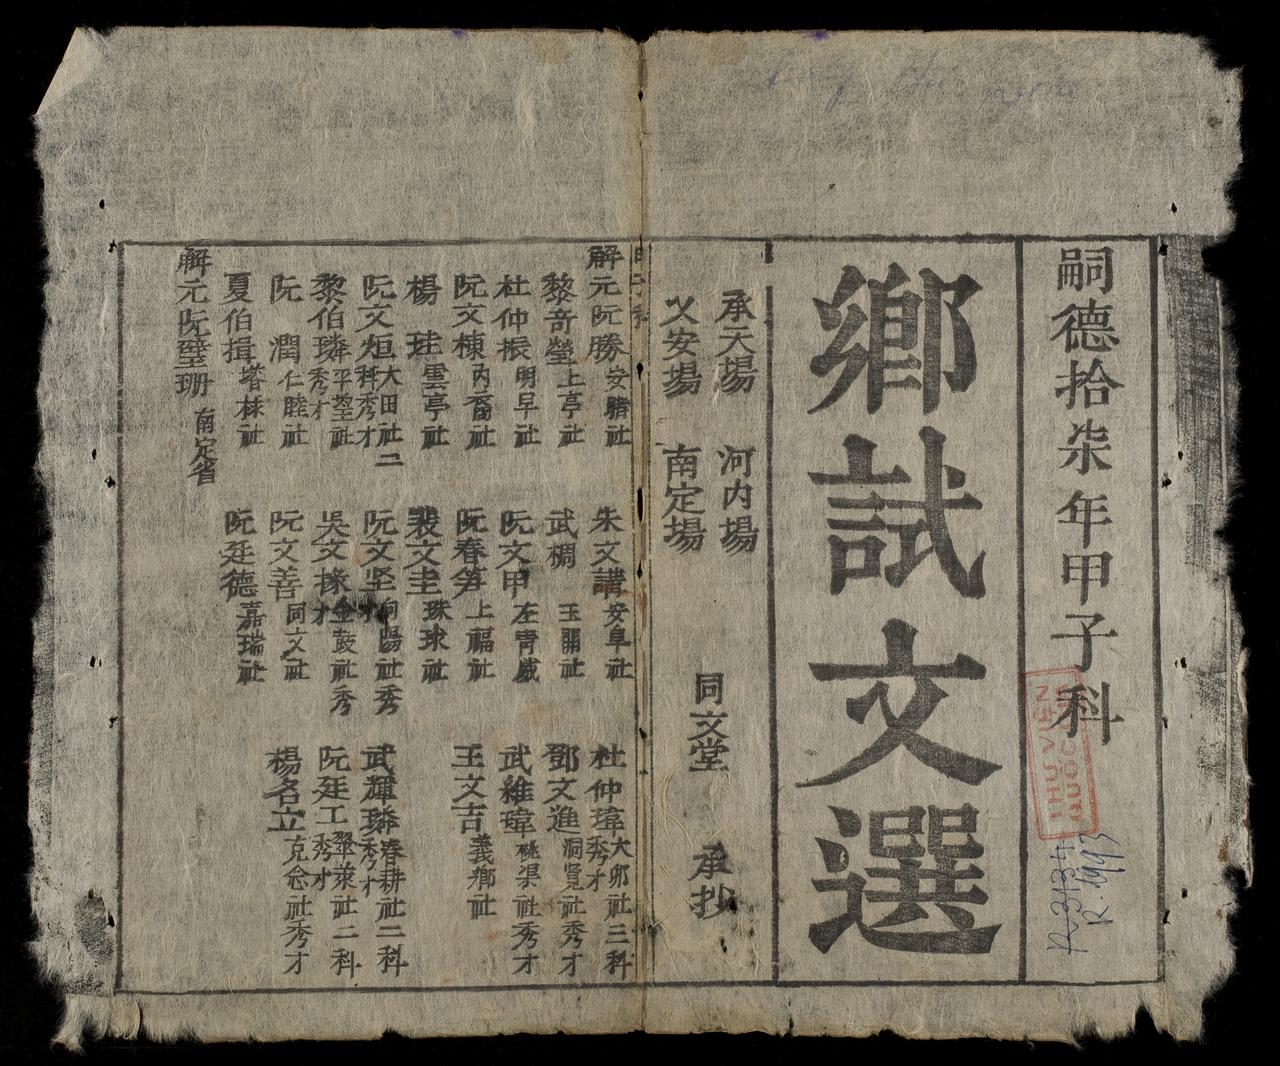 嗣德拾柒年甲子科
鄉試文選
承天場 河內場
乂安場 南定場
同文堂 承抄
甲子科
解元阮勝 安賭社
朱文講 安阜社
杜仲瑋 大卯社三科秀才
黎奇瑩 上亭社
武椆 玉關社
鄧文進 洞覽社秀才
杜仲振 明早社
阮文甲 左青威
武維瑋 桃渠社秀才
阮文棟 內裔社
阮春笋 上福社
王文吉 義鄉社
楊珪 雲亭社
裴文圭 珠球社
阮文烜 大田社二科秀才
阮文坚 向陽社秀才
武耀璘 春耕社二科秀才
黎伯璘 平望社秀才
吳文掾 金鼓社秀才
阮廷工 翠萊社二科秀才
阮潤 仁睦社
阮文善 同文社
楊名立 克念社秀才
夏伯揖 塔林社
阮廷德 嘉瑞社
解元阮珊 南定省
THƯ VIỆN
QUỐC
R.3134
R.1993